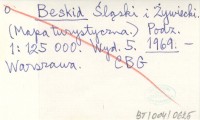 Beskid Śląski i Żywiecki.
(Mapa turystyczna.) Podz.
1:125 000. Wyd. 5. 1969. -
Warszawa. CBG
BT/004/0625